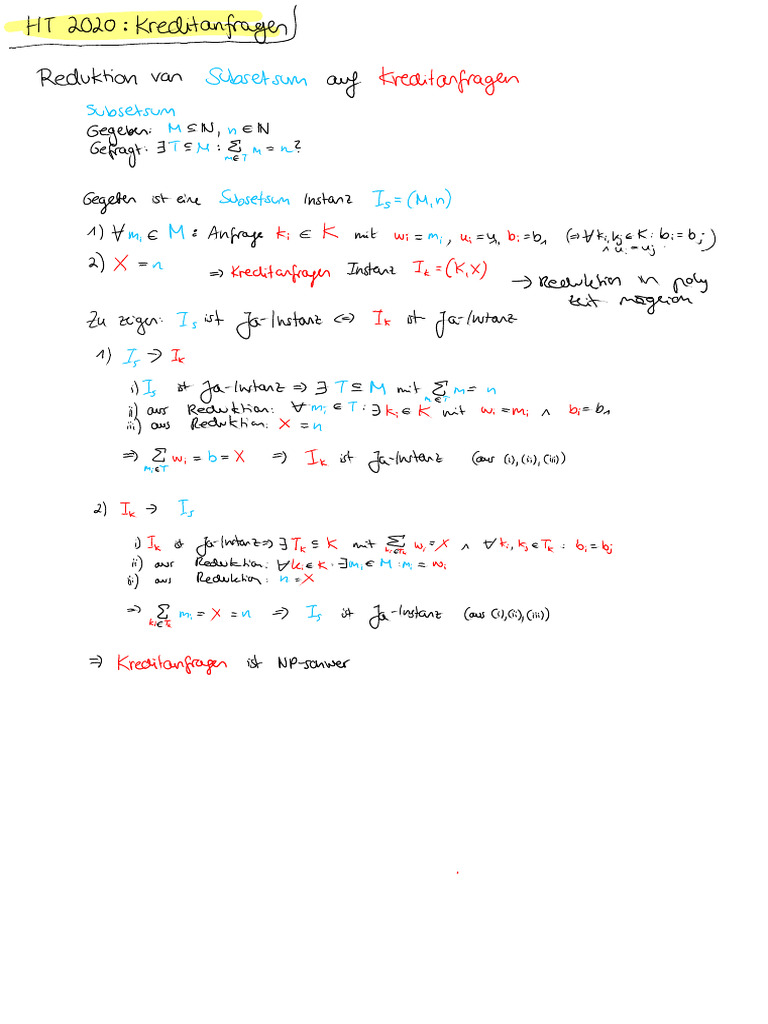 HT 2020: Kreditanfragen
Reduktion von Subsetsum auf Kreditanfragen
Subsetsum
Gegeben: M ⊆ ℕ, n ∈ ℕ
Gefragt: ∃ T ⊆ M : ∑_{m∈T} m = n?
Gegeben ist eine Subsetsum Instanz I_s = (M, n)
1) ∀ m_i ∈ M : Anfrage k_i ∈ K mit w_i = m_i, u_i = u, b_i = b_1 (⇒ ∀ k_i, k_j ∈ K: b_i = b_j)
∧ u_i = u_j
2) X = n ⇒ Kreditanfragen Instanz I_k = (K, X)
→ Reduktion in poly
zeit möglich
Zu zeigen: I_s ist Ja-Instanz ⇔ I_k ist Ja-Instanz
1) I_s → I_k
i) I_s ist Ja-Instanz ⇒ ∃ T ⊆ M mit ∑_{m∈T} m = n
ii) aus Reduktion: ∀ m_i ∈ T : ∃ k_i ∈ K mit w_i = m_i ∧ b_i = b_1
iii) aus Reduktion: X = n
⇒ ∑_{m_i∈T} w_i = b = X ⇒ I_k ist Ja-Instanz (aus (i), (ii), (iii))
2) I_k → I_s
i) I_k ist Ja-Instanz ⇒ ∃ T_k ⊆ K mit ∑_{k_i∈T_k} w_i = X ∧ ∀ k_i, k_j ∈ T_k : b_i = b_j
ii) aus Reduktion: ∀ k_i ∈ K : ∃ m_i ∈ M : m_i = w_i
iii) aus Reduktion: n = X
⇒ ∑_{k_i∈T_k} m_i = X = n ⇒ I_s ist Ja-Instanz (aus (i), (ii), (iii))
⇒ Kreditanfragen ist NP-schwer